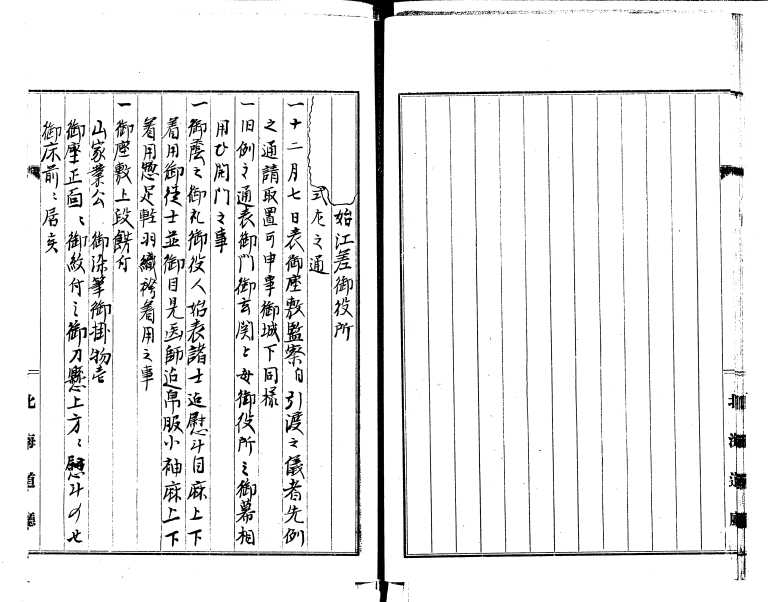 始江差御役所
式左之通
一十二月七日表御座敷監察自引渡之儀者先例
之通請取置可申事御城下同様
一旧例之通表御門御玄関与毎御役所之御幕相
用ひ開門之事
一御蔭之御礼御役人始表諸士迄慰斗目麻上下
着用御徒士並御目見医師迄帛服小袖麻上下
着用惣足軽羽織袴着用之事
一御座敷上段餝付
山家業公 御染筆御掛物壱
御座正面ニ御紋付之御刀懸上方ニ慰斗の
御床前ニ居
北海道廳
北海道廳